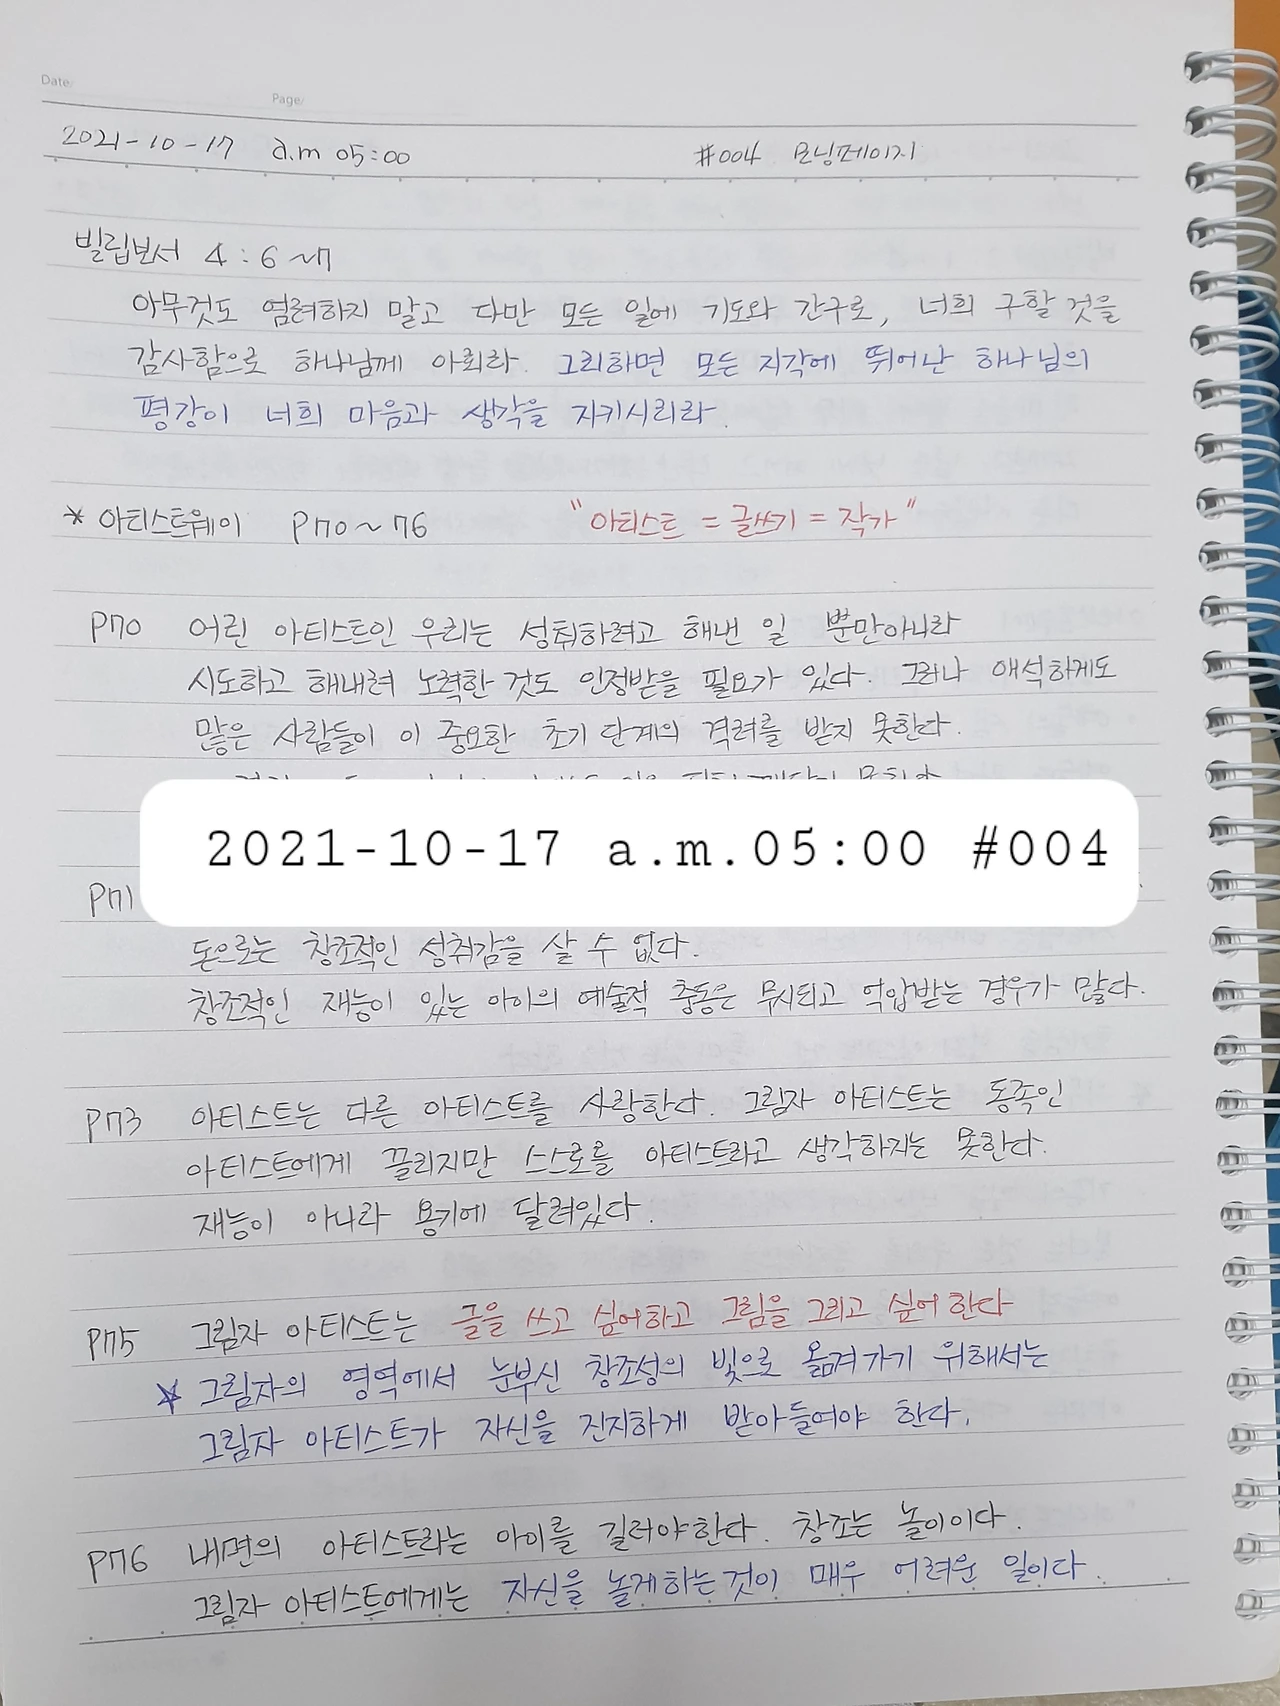 Date/
Page/
2021-10-17 a.m 05:00 #004 모닝페이지
빌립보서 4:6~7
아무것도 염려하지 말고 다만 모든 일에 기도와 간구로, 너희 구할 것을
감사함으로 하나님께 아뢰라. 그리하면 모든 지각에 뛰어난 하나님의
평강이 너희 마음과 생각을 지키시리라.
* 아티스트웨이 P70~76 "아티스트 = 글쓰기 = 작가"
P70 어린 아티스트인 우리는 성취하려고 해낸 일 뿐만아니라
시도하고 해내려 노력한 것도 인정받을 필요가 있다. 그러나 애석하게도
많은 사람들이 이 중요한 초기 단계의 격려를 받지 못한다.
2021-10-17 a.m.05:00 #004
P71
돈으로는 창조적인 성취감을 살 수 없다.
창조적인 재능이 있는 아이의 예술적 충동은 무시되고 억압받는 경우가 많다.
P73 아티스트는 다른 아티스트를 사랑한다. 그림자 아티스트는 동족인
아티스트에게 끌리지만 스스로를 아티스트라고 생각하지는 못한다.
재능이 아니라 용기에 달려있다.
P75 그림자 아티스트는 글을 쓰고 싶어하고 그림을 그리고 싶어 한다
* 그림자의 영역에서 눈부신 창조성의 빛으로 옮겨가기 위해서는
그림자 아티스트가 자신을 진지하게 받아들여야 한다.
P76 내면의 아티스트라는 아이를 길러야한다. 창조는 놀이이다.
그림자 아티스트에게는 자신을 놀게하는것이 매우 어려운 일이다.